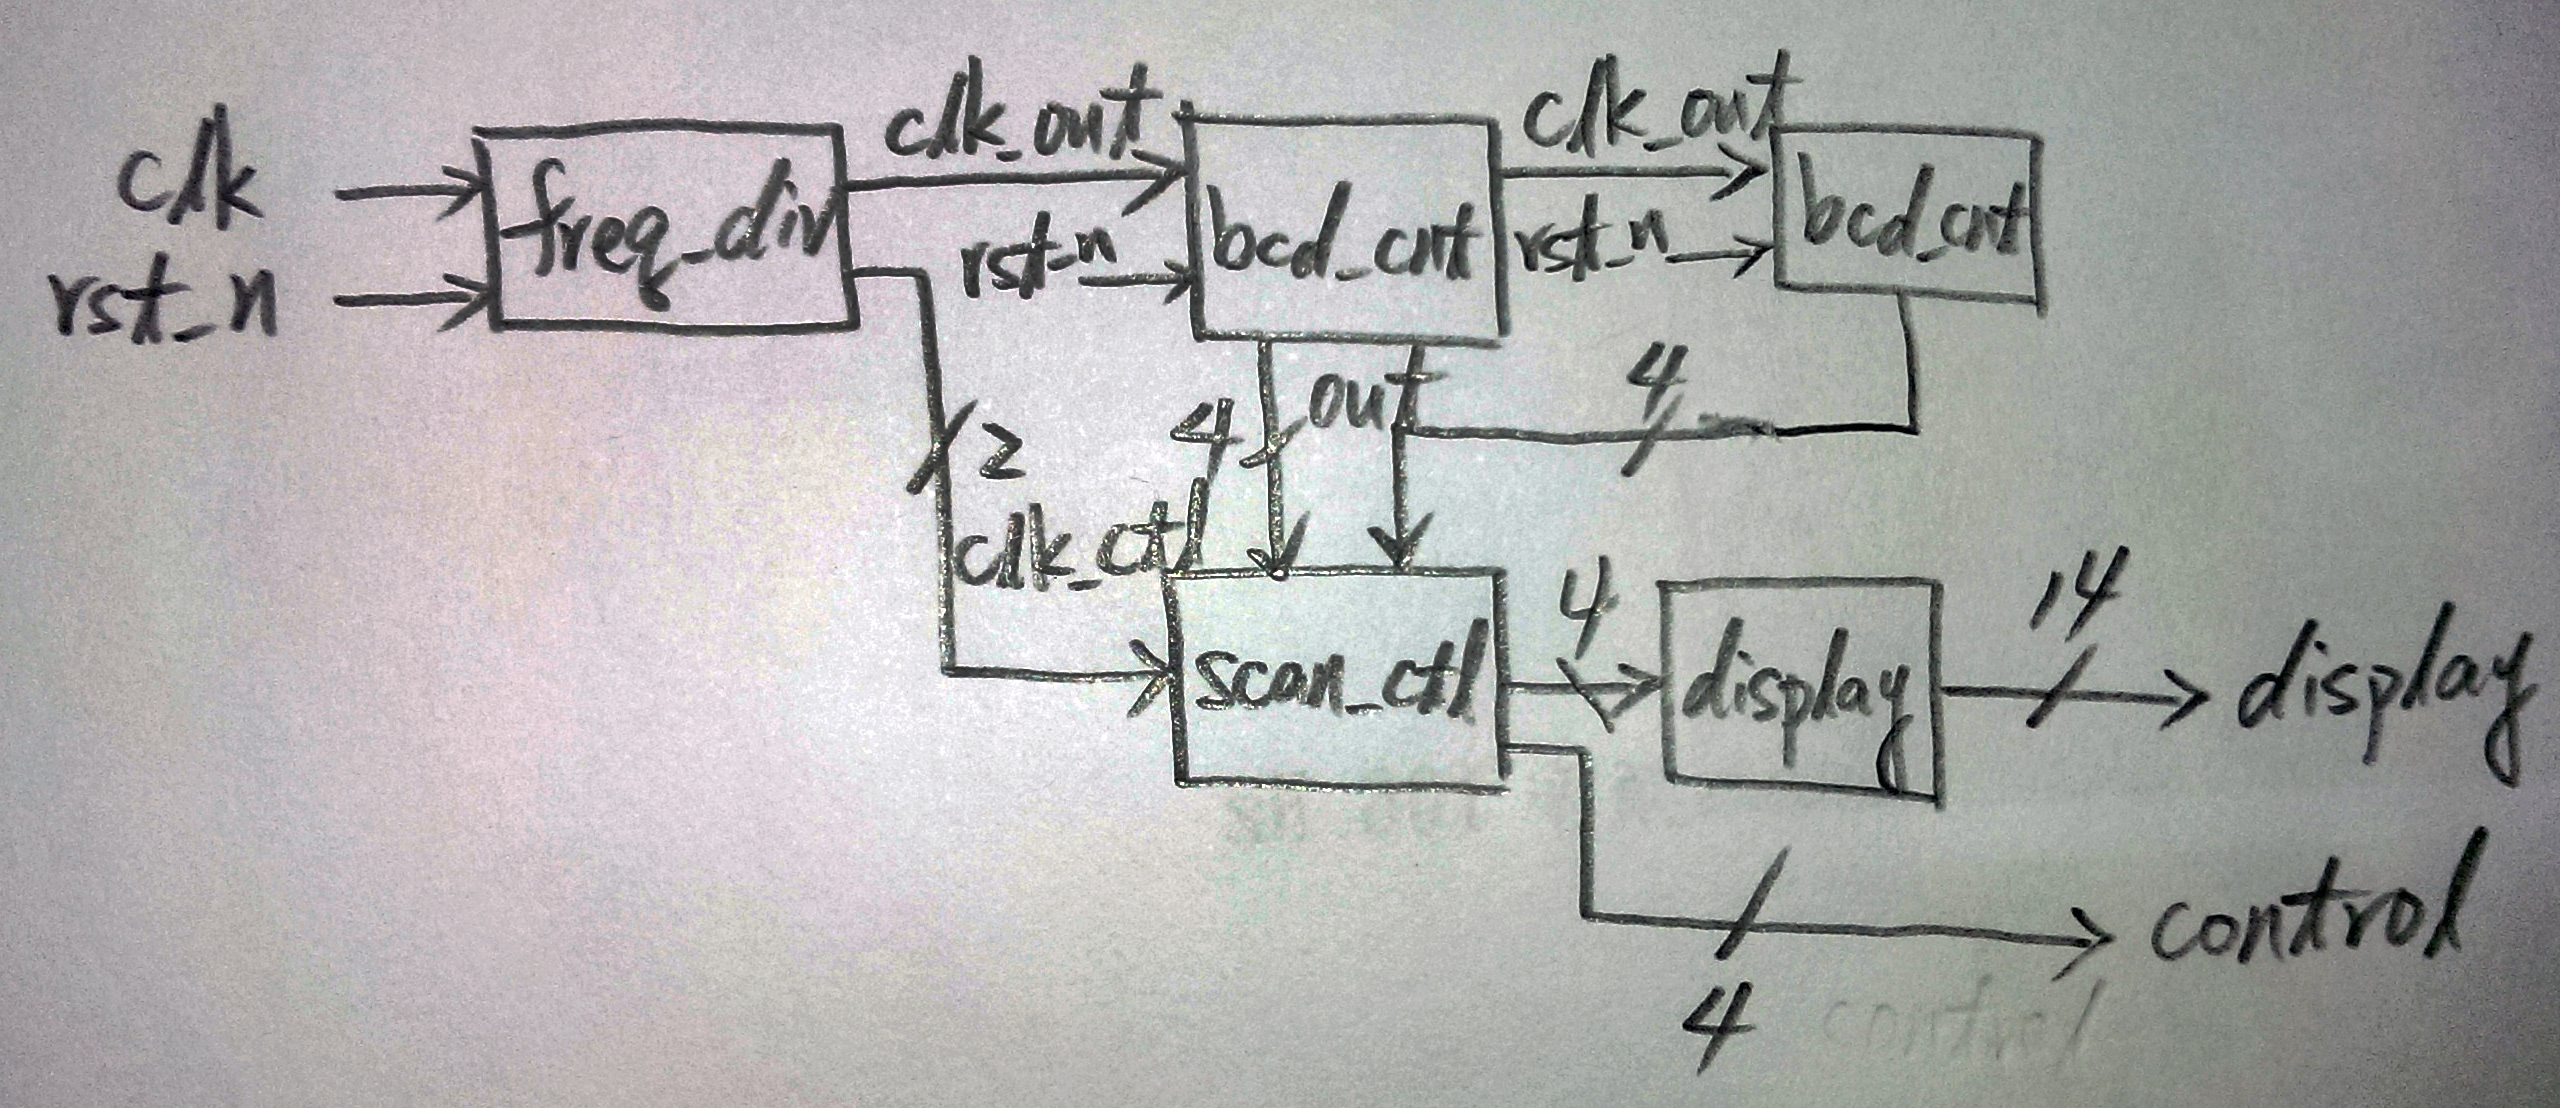 clk
rst_n
freq_div
clk_out
rst_n
bcd_cnt
clk_out
rst_n
bcd_cnt
2
clk_ctl
4
out
4
scan_ctl
4
display
14
display
4
control
control